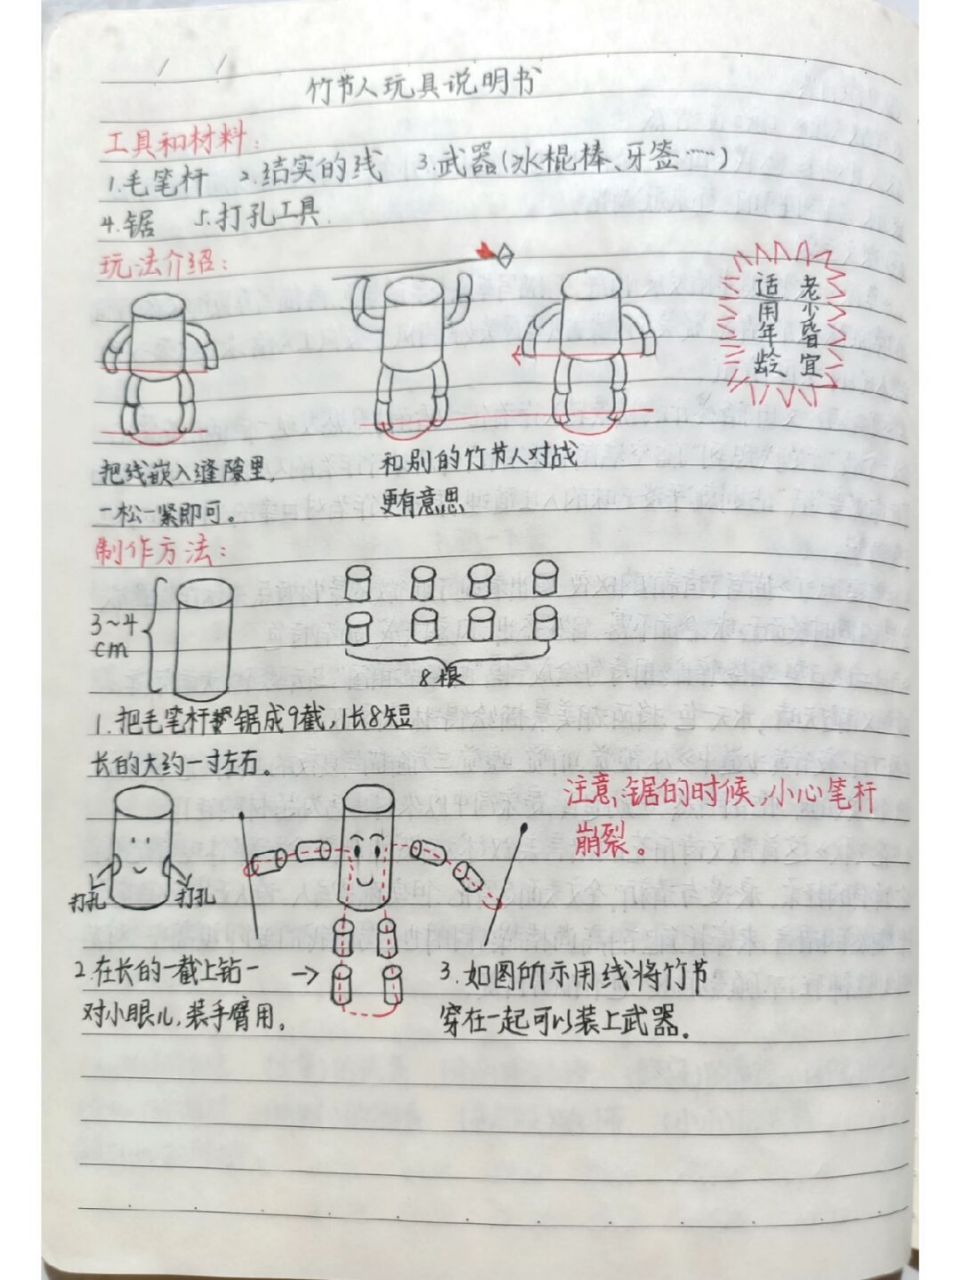 竹节人玩具说明书
工具和材料：
1.毛笔杆 2.结实的线 3.武器(冰棍棒、牙签……)
4.锯 5.打孔工具
玩法介绍：
老少皆宜
适用年龄
把线嵌入缝隙里，
一松一紧即可。
和别的竹节人对战
更有意思
制作方法：
3~4
cm
8根
1.把毛笔杆锯成9截，1长8短
长的大约一寸左右。
注意，锯的时候，小心笔杆
崩裂。
打孔
打孔
2.在长的一截上钻一
对小眼儿，装手臂用。
3.如图所示用线将竹节
穿在一起可以装上武器。